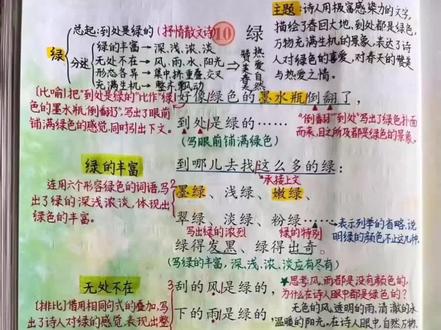 总起:到处是绿的(抒情散文诗)
10 绿
主题:诗人用极富感染力的文字,
描绘了春回大地,到处都是绿色,
万物充满生机的景象,表达了诗
人对绿色的喜爱,对春天的赞美
与热爱之情。
绿
分述
绿的丰富→深、浅、浓、淡
无处不在→风、雨、水、阳光
形态各异→集中、挤、重叠、交叉
充满生机→整齐、飘动
赞美春天
热爱自然
[比喻]把“到处是绿的”比作“绿
色的墨水瓶倒翻了”,写出了眼前
铺满绿色的感觉,同时引出下文。
好像绿色的墨水瓶倒翻了,
到处是绿的……
(写眼前铺满绿色)
“倒翻”“到处”写出了绿色扑面
而来,目之所及都是绿色的景象。
到哪儿去找这么多的绿:
承接上文
绿的丰富
连用六个形容绿色的词语,写
出了绿的深浅浓淡,体现出
绿色的丰富。
墨绿、浅绿、嫩绿、
翠绿、淡绿、粉绿……
表示列举的省略,说
明绿的颜色不止这几种。
写出绿的浓烈
绿的特别
绿得发黑、绿得出奇。
(写绿的丰富,深、浅、浓、淡应有尽有)
无处不在
[排比]借用相同句式的叠加,写
出了诗人对绿的感觉,表现出整
刮的风是绿的,
下的雨是绿的,
思考:风、雨都是没有颜色的,
为什么在诗人眼中都是绿色的?
无色的风、透明的雨、清澈的水
温暖的阳光,在诗人眼中,自然万物